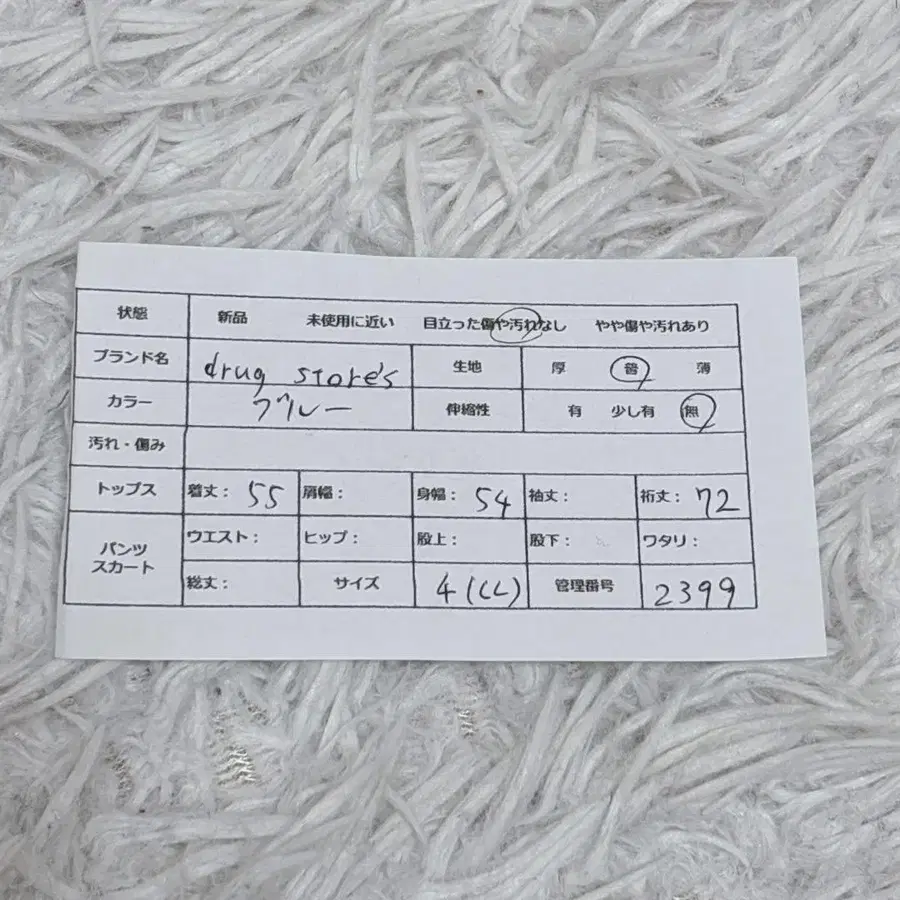 状態 新品 未使用に近い 目立った傷や汚れなし やや傷や汚れあり
ブランド名 drug store's 生地 厚 普 薄
カラー ブルー 伸縮性 有 少し有 無
汚れ・傷み
トップス 着丈： 55 肩幅： 身幅： 54 袖丈： 裄丈： 72
パンツ スカート ウエスト： ヒップ： 股上： 股下： ワタリ：
総丈： サイズ 4(LL) 管理番号 2399